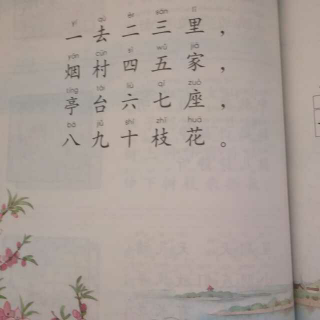 yí qù èr sān lǐ
一去二三里，
yān cūn sì wǔ jiā
烟村四五家，
tíng tái liù qī zuò
亭台六七座，
bā jiǔ shí zhī huā
八九十枝花。